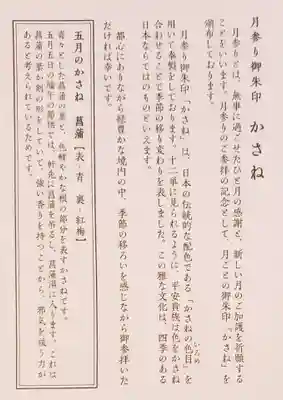 月参り御朱印 かさね
月参りとは、無事に過ごせたひと月の感謝と、新しい月のご加護を祈願する
ことをいいます。月参りのご参拝の記念として、月ごとの御朱印「かさね」を
頒布しております。
月参り御朱印「かさね」は、日本の伝統的な配色である「かさねの色目」を
いろめ
用いて奉製をしております。十二単に見られるように、平安貴族は色をかさね
合わせることで季節の移り変わりを表しました。この雅な文化は、四季のある
日本ならではのものといえます。
都心にありながら緑豊かな境内の中、季節の移ろいを感じながら御参拝いた
だければ幸いです。
五月のかさね 菖蒲【表・青 裏・紅梅】
青々とした菖蒲の葉と、色鮮やかな根の部分を表すかさねです。
五月五日の端午の節供では、軒先に菖蒲を吊るし、菖蒲湯に入ります。これは
菖蒲の葉が剣の形をしていて、強い香りを持つことから、邪気を祓う力が
あると考えられているためです。